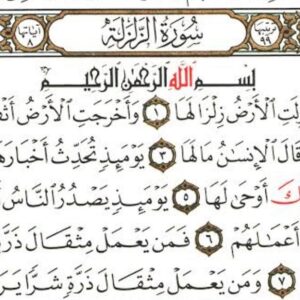 ترتيبها ٩٩ سُورَةُ الزَّلْزَلَةِ آياتها ٨
بِسْمِ اللَّهِ الرَّحْمَٰنِ الرَّحِيمِ
الْأَرْضُ زِلْزَالَهَا ١ وَأَخْرَجَتِ الْأَرْضُ
قَالَ الْإِنسَانُ مَا لَهَا ٣ يَوْمَئِذٍ تُحَدِّثُ أَخْبَارَهَا
أَوْحَىٰ لَهَا ٥ يَوْمَئِذٍ يَصْدُرُ النَّاسُ
أَعْمَالَهُمْ ٦ فَمَن يَعْمَلْ مِثْقَالَ ذَرَّةٍ
٧ وَمَن يَعْمَلْ مِثْقَالَ ذَرَّةٍ شَرًّا